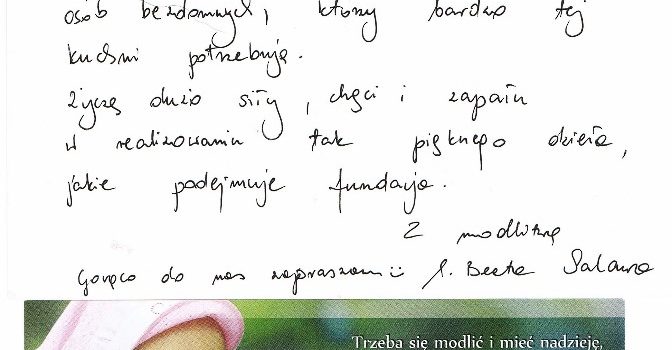 osób bezdomnych, którzy bardzo tej
kuchni potrzebują.
Życzę dużo siły, chęci i zapału
w realizowaniu tak pięknego dzieła,
jakie podejmuje fundacja.
Z modlitwą
Gorąco do nas zapraszam :) s. Beata
Trzeba się modlić i mieć nadzieję,